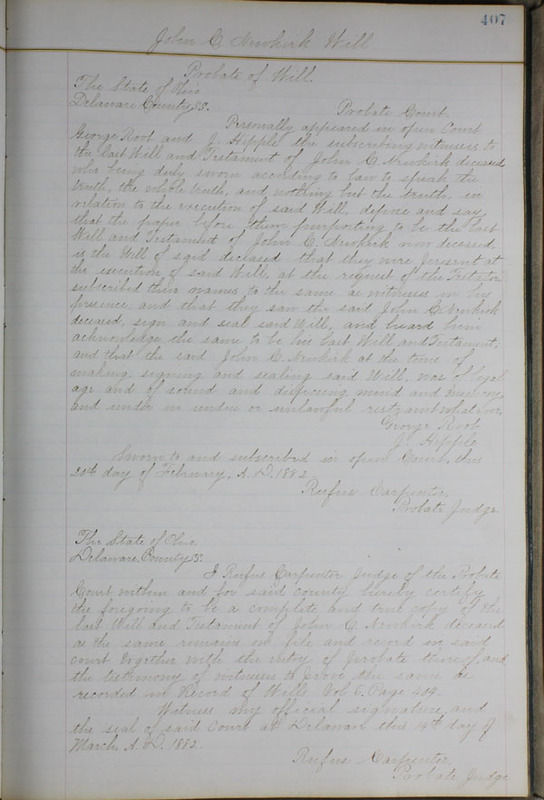 407
John C. Newkirk Will
Probate of Will.
The State of Ohio
Delaware County SS.
Probate Court.
Personally appeared in open Court
George Root and J. Hipple the subscribing witnesses to
the last Will and Testament of John C. Newkirk deceased
who being duly sworn according to law to speak the
truth, the whole truth, and nothing but the truth, in
relation to the execution of said Will, depose and say,
that the paper before them purporting to be the last
Will and Testament of John C. Newkirk now deceased,
is the Will of said deceased that they were present at
the execution of said Will, at the request of the Testator
subscribed their names to the same as witnesses in his
presence and that they saw the said John C. Newkirk
deceased, sign and seal said Will, and heard him
acknowledge the same to be his last Will and Testament,
and that the said John C. Newkirk at the time of
making signing and sealing said Will, was of legal
age and of sound and disposing mind and memory
and under no undue or unlawful restraint whatsoever
George Root
J. Hipple
Sworn to and subscribed in open Court, this
20th day of February, A. D. 1882
Rufus Carpenter,
Probate Judge.
The State of Ohio
Delaware County SS.
I Rufus Carpenter Judge of the Probate
Court within and for said county hereby certify
the foregoing to be a complete and true copy of the
last Will and Testament of John C. Newkirk deceased
as the same remains on file and record in said
court together with the entry of probate thereof, and
the testimony of witnesses to prove the same as
recorded in Record of Wills Vol 6. Page 404.
Witness my official signature and
the seal of said Court at Delaware this 14th day of
March, A. D. 1882.
Rufus Carpenter,
Probate Judge